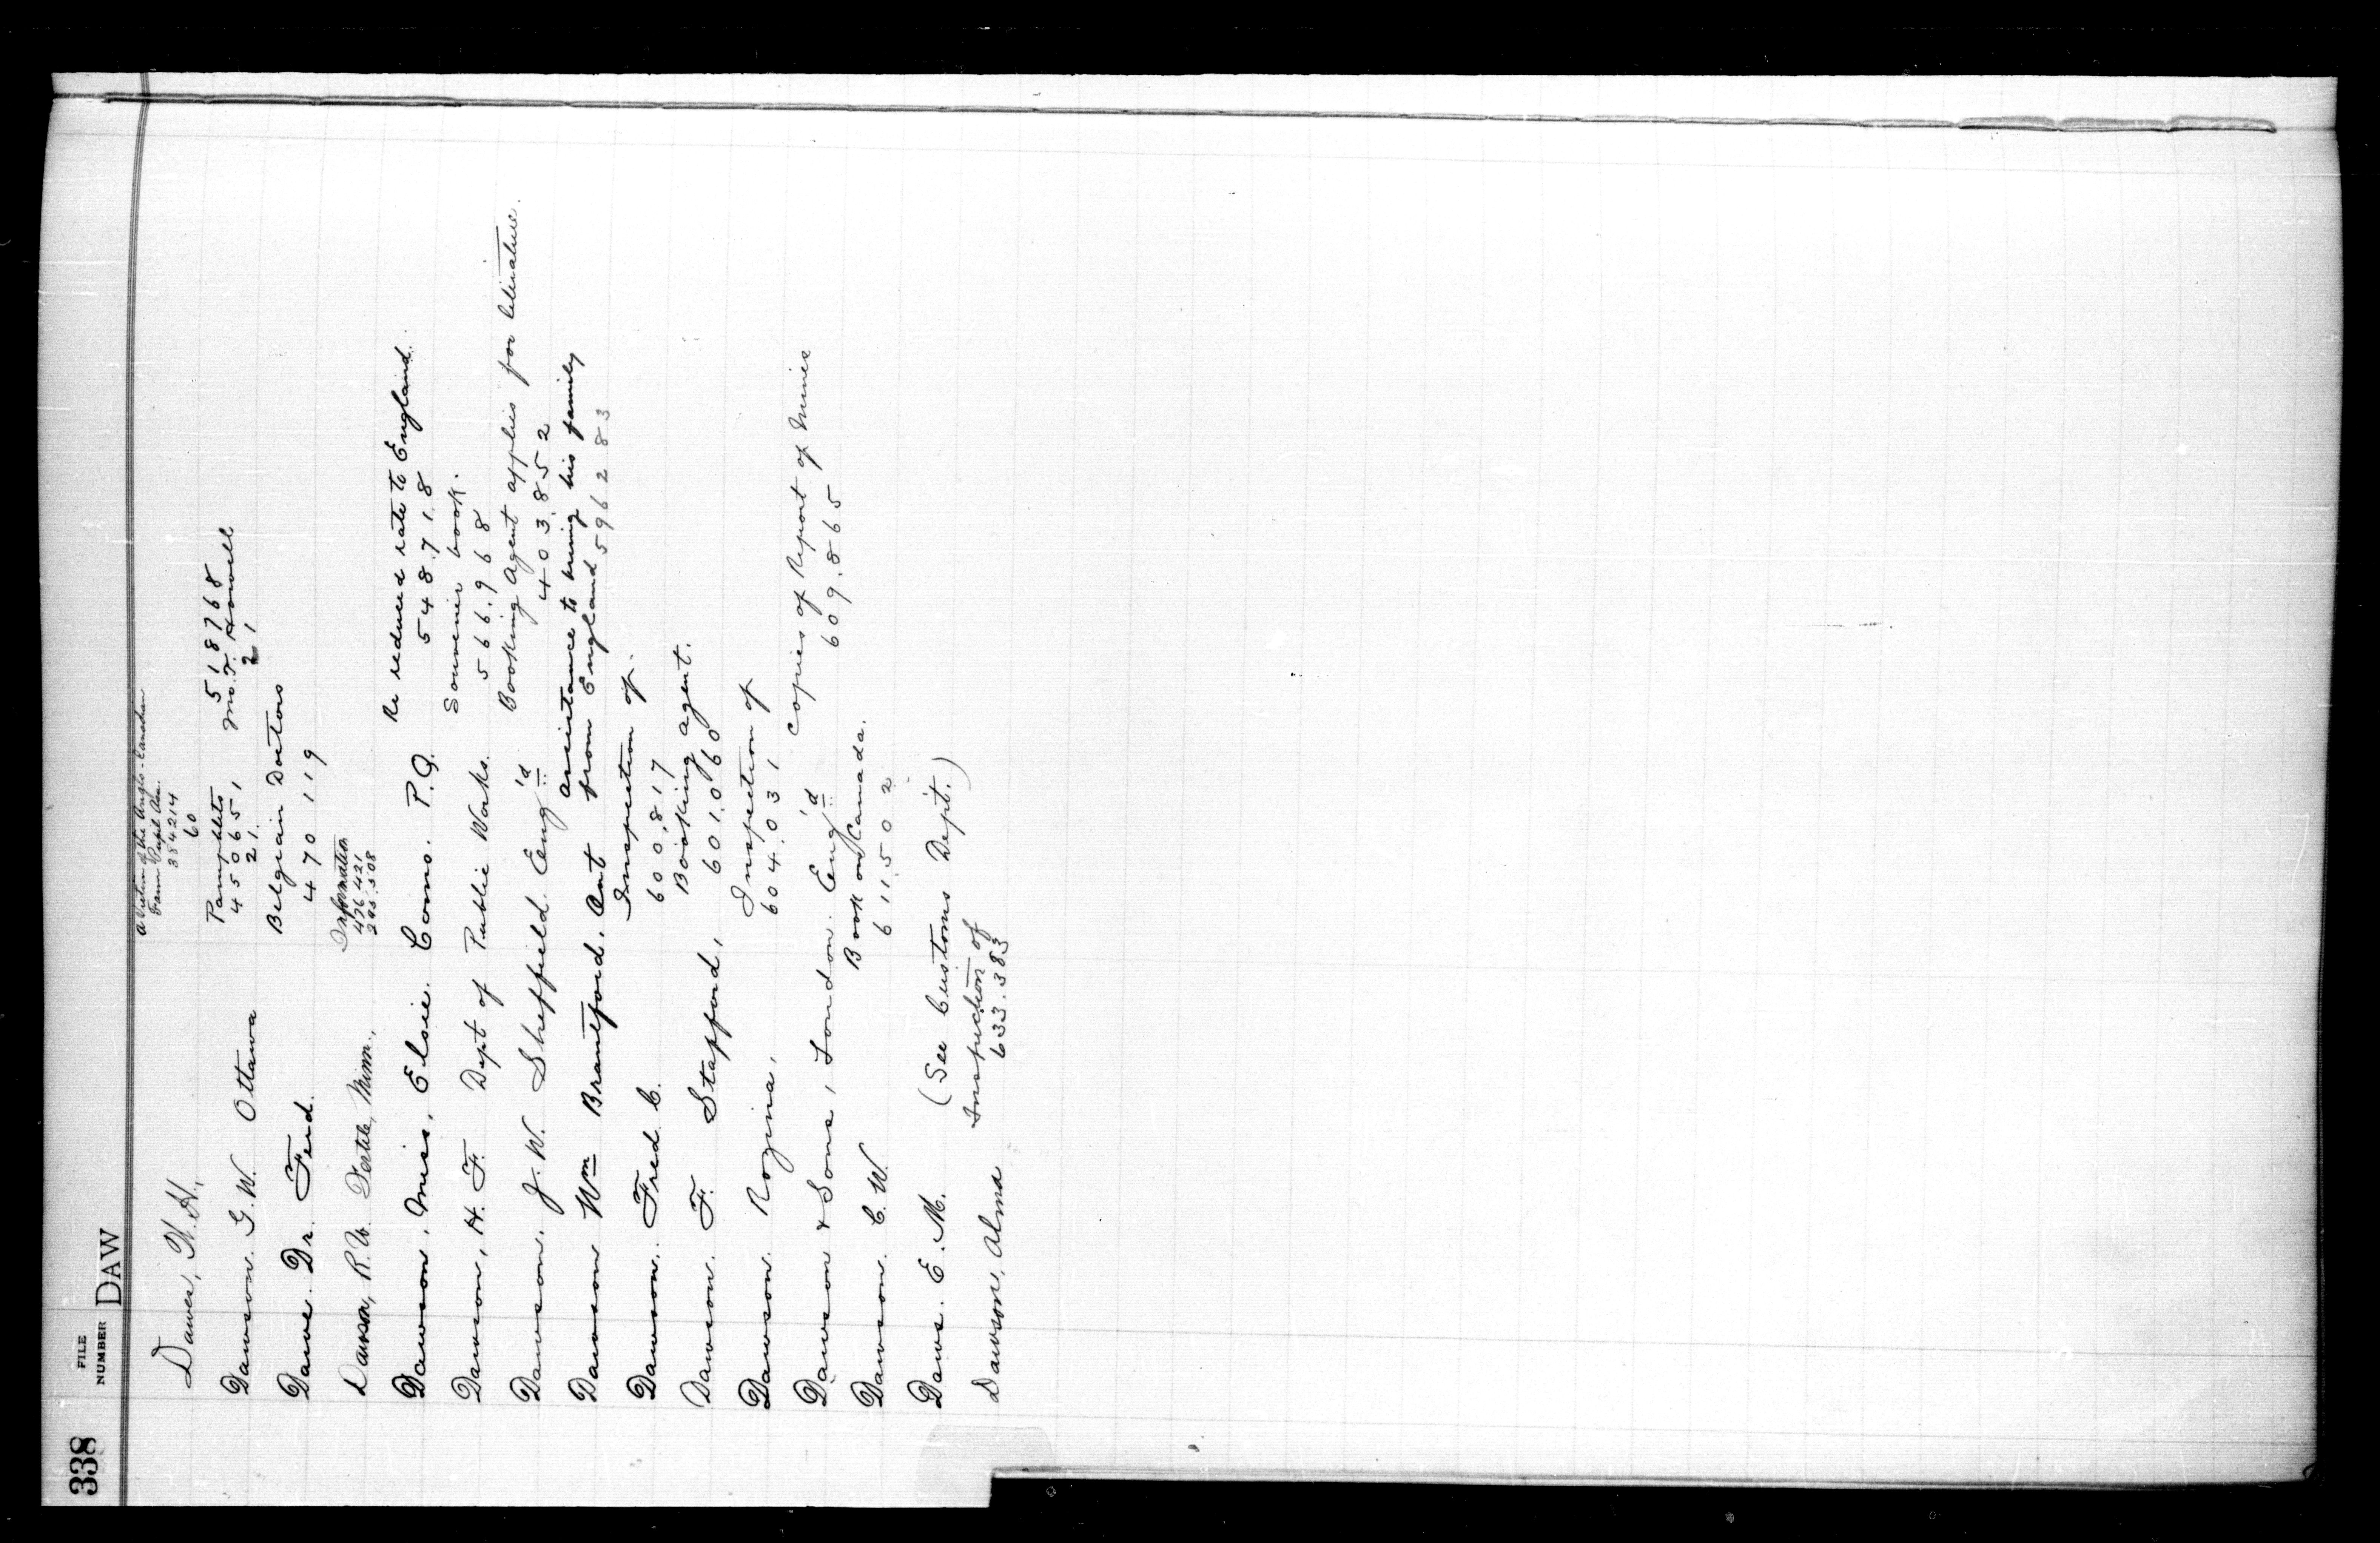 338
FILE
NUMBER
DAW
Dawes, W. H.,
of the Anglo-Canadian
Farm Pupil Assn.
384214
60
Dawson. G. W. Ottawa
Pamphlets 518768
450651 J. Howell
21. 21
Dawe. Dr. Ferd.
Belgian Doctors
470119
Dawson, R. W. Fertile, Minn.
Information
436421
295.508
Dawson, Miss, Elsie. Coms. P.Q. Re reduced rate to England.
548.718
Dawson, H. F. Dept of Public Works. Souvenir book.
566.968
Dawson. J. W. Sheffield Eng'd Booking Agent applies for literature.
403.852
Dawson Wm Brantford. Ont assistance to bring his family
from England 596283
Dawson, Fred C. Inspection of.
600.817
Dawson. F. Stafford, Booking agent.
601.060
Dawson. Rozina, Inspection of
604.031
Dawson & Sons, London. Eng'd copies of Report of Mines
609.865
Dawson. C. W. Book on Canada.
611.502
Daws. E. M. (See Customs Dept.)
Dawson, Alma Inspection of
633.383